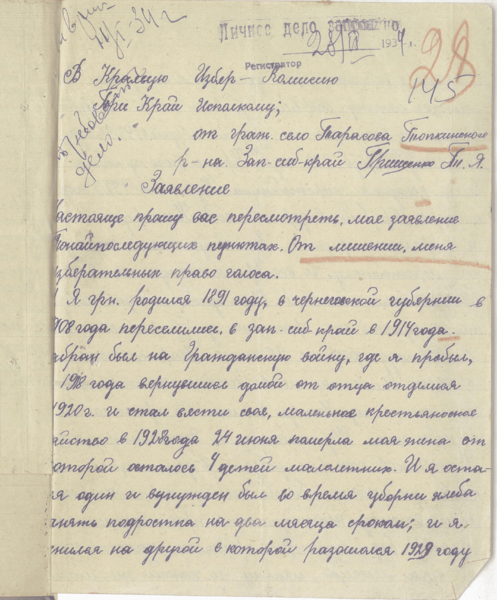 14/XI 34 г
Личное дело запрошено
28/XI 1934 г.
Регистратор
28
145
В Краевую Избер-Комиссию
При Край Исполкому;
Требовать
дело.
от граж. село Тарасова Топкинского
р-на. Зап-сиб-край Грищенко Т. Я.
Заявление
настояще прошу вас пересмотреть, мае заявление
Понайпоследующих пунктах. От лишении, меня
изберательных право голоса.
Я грн. родился 1891 году, в черниговской губернии в
1908 года переселились, в зап-сиб-край в 1914 года.
забран был на Гражданскую войну, где я пробыл,
1918 года вернувшись домой от отца отделился
1920 г. и стал вести свае, маленькое крестьянское
зяйство в 1928 года 24 июня памерла мая жина от
которой осталось 4 детей малолетних. И я оста-
ся один и вынужден был во время уборки хлеба
нанять подростка на два месяца сроком; и я
женился на другой с которой разошолся 1929 году